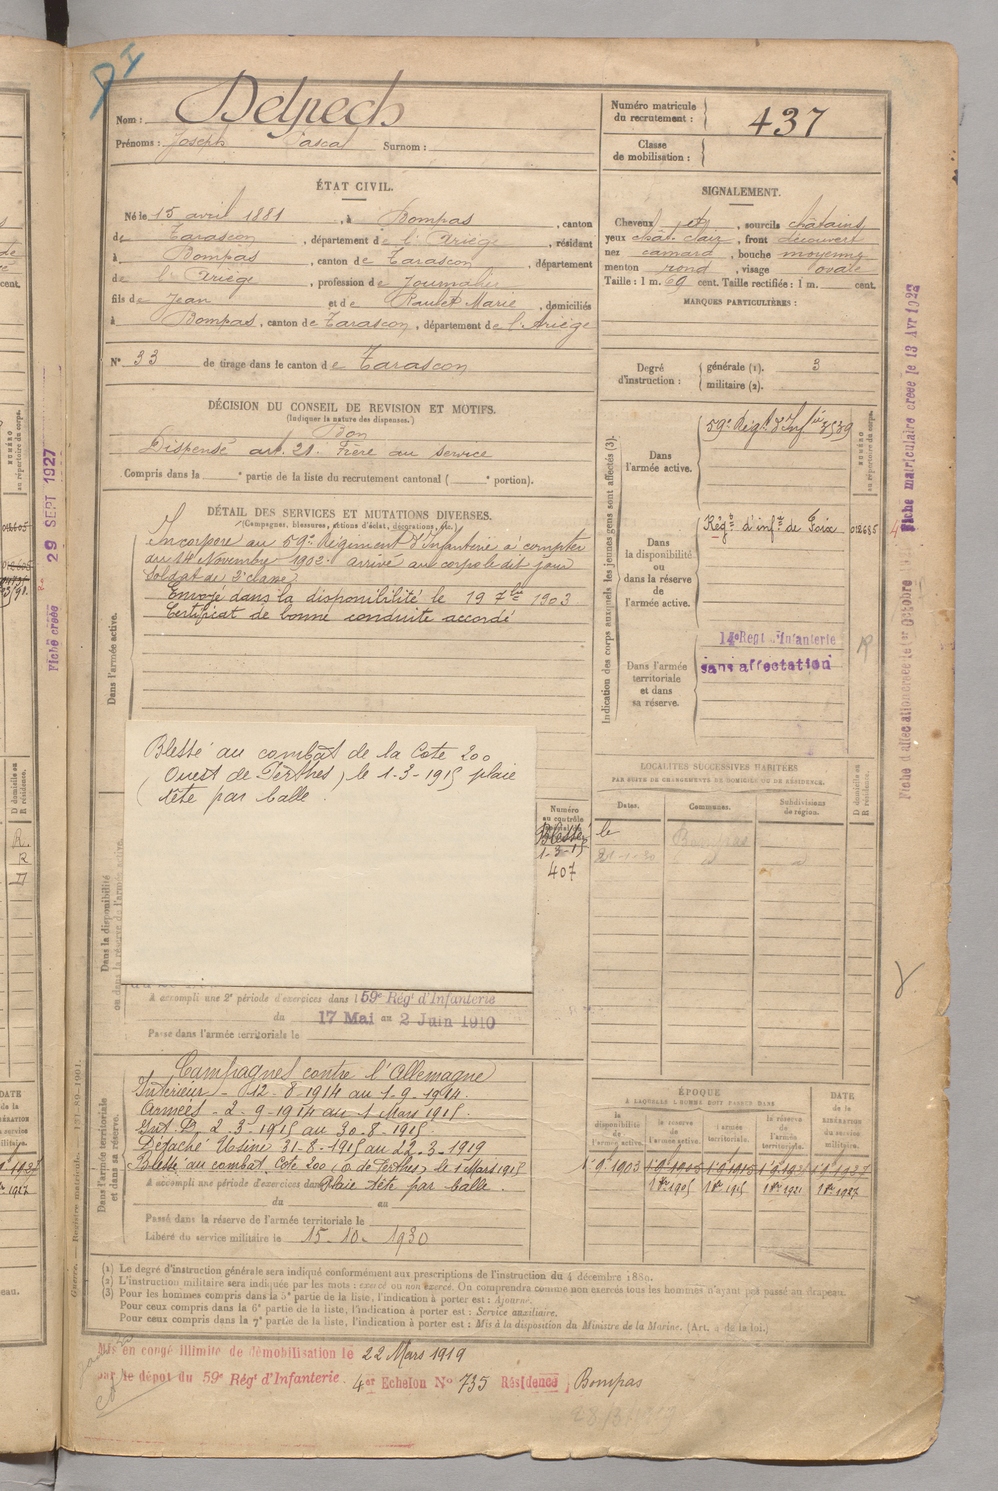 Nom : Delpech
Prénoms : Joseph Pascal Surnom :
Numéro matricule du recrutement : 437
Classe de mobilisation :
ÉTAT CIVIL.
Né le 15 avril 1881, à Bompas, canton
de Tarascon, département de l'Ariège, résidant
à Bompas, canton de Tarascon, département
de l'Ariège, profession de Journalier
fils de Jean et de Marie, domiciliés
à Bompas, canton de Tarascon, département de l'Ariège
N° 33 de tirage dans le canton de Tarascon
SIGNALEMENT.
Cheveux et, sourcils châtains
yeux chât. clair, front découvert
nez camard, bouche moyenne
menton rond, visage ovale
Taille : 1 m. 69 cent. Taille rectifiée : 1 m. cent.
MARQUES PARTICULIÈRES :
Degré d'instruction : générale (1). 3
militaire (2).
DÉCISION DU CONSEIL DE REVISION ET MOTIFS.
(Indiquer la nature des dispenses.)
Bon
Dispensé art. 21. Frère au service
Compris dans la e partie de la liste du recrutement cantonal ( e portion).
DÉTAIL DES SERVICES ET MUTATIONS DIVERSES.
(Campagnes, blessures, actions d'éclat, décorations, etc.)
Dans l'armée active.
Incorporé au 59e Régiment d'Infanterie à compter
du 14 Novembre 1902. arrivé au corps le dit jour
Soldat de 2e classe
Envoyé dans la disponibilité le 19 7bre 1903
Certificat de bonne conduite accordé
Indication des corps auxquels les jeunes gens sont affectés (3).
NUMÉRO au répertoire du corps.
Dans l'armée active.
59e Régt d'Infie 3539
Dans la disponibilité ou dans la réserve de l'armée active.
Régt d'infie de Foix 012685
Dans l'armée territoriale et dans sa réserve.
14e Regt d'Infanterie
sans affectation
R
Dans la disponibilité ou dans la réserve de l'armée active.
Blessé au combat de la Cote 200
(Ouest de Perthes) le 1-3-1915 plaie
tête par balle.
Numéro au contrôle
Blessé
1-3-15
407
A accompli une 2e période d'exercices dans l 59e Rég' d'Infanterie
du 17 Mai au 2 Juin 1910
Passé dans l'armée territoriale le
LOCALITÉS SUCCESSIVES HABITÉES
PAR SUITE DE CHANGEMENTS DE DOMICILE OU DE RÉSIDENCE.
Dates. Communes. Subdivisions de région. D domicile ou R résidence.
le Bompas
21-1-30 d d
Dans l'armée territoriale et dans sa réserve.
Campagnes contre l'Allemagne
Intérieur - 12-8-1914 au 1-9-1914.
Armées - 2-9-1914 au 1 Mars 1915.
Int. D. 2-3-1915 au 30-8-1915.
Détaché Usine 31-8-1915 au 22-3-1919
Blessé au combat Cote 200 (O de Perthes) le 1 Mars 1915
A accompli une période d'exercices dans Plaie tête par balle.
du au
Passé dans la réserve de l'armée territoriale le
Libéré du service militaire le 15-10-1930
ÉPOQUE
A LAQUELLE L'HOMME DOIT PASSER DANS
la disponibilité de l'armée active. la réserve de l'armée active. l'armée territoriale. la réserve de l'armée territoriale. DATE de la LIBÉRATION du service militaire.
1 9 1903
1er 1905 1er 1915 1er 1921 1er 1927
(1) Le degré d'instruction générale sera indiqué conformément aux prescriptions de l'instruction du 4 décembre 1889.
(2) L'instruction militaire sera indiquée par les mots : exercé ou non exercé. On comprendra comme non exercés tous les hommes n'ayant pas passé au drapeau.
(3) Pour les hommes compris dans la 5e partie de la liste, l'indication à porter est : Ajourné.
Pour ceux compris dans la 6e partie de la liste, l'indication à porter est : Service auxiliaire.
Pour ceux compris dans la 7e partie de la liste, l'indication à porter est : Mis à la disposition du Ministre de la Marine. (Art. 4 de la loi.)
Mis en congé illimité de démobilisation le 22 Mars 1919
par le dépôt du 59e Rég' d'Infanterie. 4er Echelon N° 735 Résidence, Bompas
Fiche matriculaire créée le 13 Avr 1927
Fiche créée 29 SEPT 1927